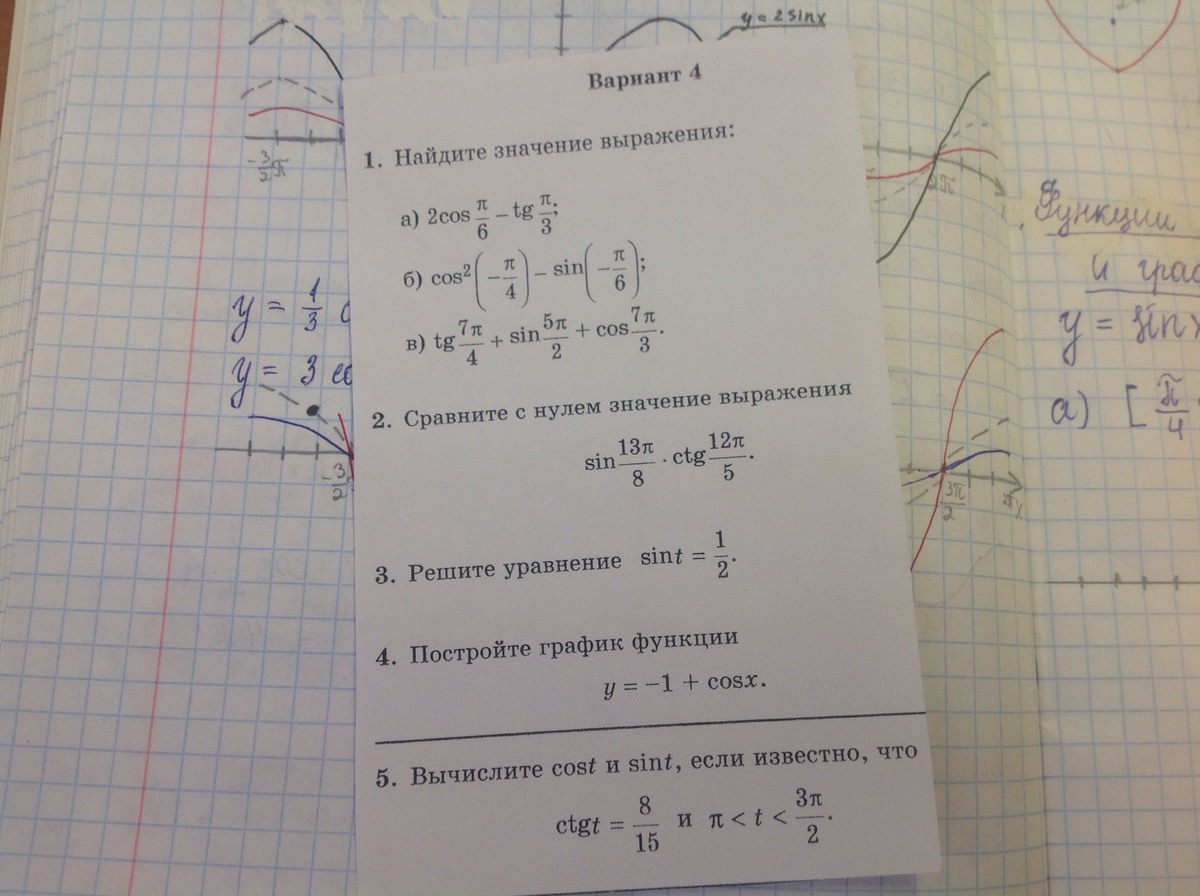 y = 2 sinx
Вариант 4
1. Найдите значение выражения:
а) 2cos π/6 – tg π/3;
б) cos²(–π/4) – sin(–π/6);
в) tg 7π/4 + sin 5π/2 + cos 7π/3.
2. Сравните с нулем значение выражения
sin 13π/8 · ctg 12π/5.
3. Решите уравнение sin t = 1/2.
4. Постройте график функции
y = –1 + cosx.
5. Вычислите cost и sint, если известно, что
ctgt = 8/15 и π < t < 3π/2.
-3/2 π
y = 1/3
y = 3
-3/2
2π
3π/2
Функции
и
y = sin x
а) [ π/4